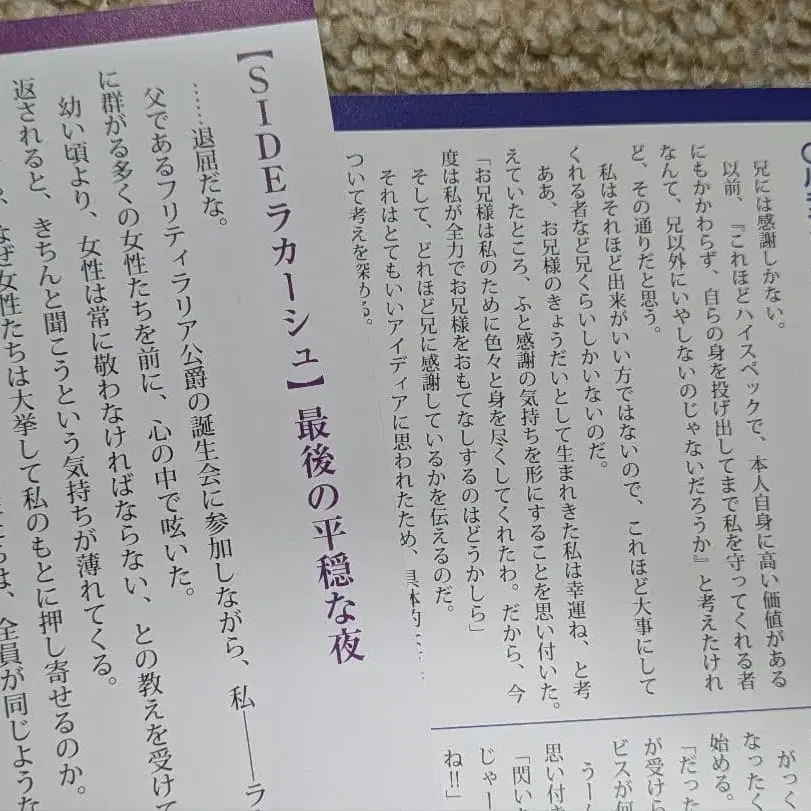 兄には感謝しかない。
以前、『これほどハイスペックで、本人自身に高い価値がある
にもかかわらず、自らの身を投げ出してまで私を守ってくれる者
なんて、兄以外にいやしないのじゃないだろうか』と考えたけれ
ど、その通りだと思う。
私はそれほど出来がいい方ではないので、これほど大事にして
くれる者など兄くらいしかいないのだ。
ああ、お兄様のきょうだいとして生まれきた私は幸運ね、と考
えていたところ、ふと感謝の気持ちを形にすることを思い付いた。
「お兄様は私のために色々と身を尽くしてくれたわ。だから、今
度は私が全力でお兄様をおもてなしするのはどうかしら」
そして、どれほど兄に感謝しているかを伝えるのだ。
それはとてもいいアイディアに思われたため、具体的
ついて考えを深める。
がっく
なったく
始める。
「だった
が受けら
ビスが何
うーん
思い付き
「閃いた
じゃー
ね!!」
【SIDEラカーシュ】最後の平穏な夜
……退屈だな。
父であるフリティラリア公爵の誕生会に参加しながら、私――ラ
に群がる多くの女性たちを前に、心の中で呟いた。
幼い頃より、女性は常に敬わなければならない、との教えを受けて
返されると、きちんと聞こうという気持ちが薄れてくる。
なぜ女性たちは大挙して私のもとに押し寄せるのか。
は、全員が同じような